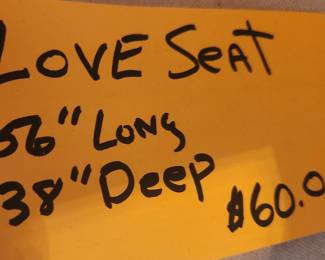 LOVE SeaT
56" Long
38" Deep
$60.0